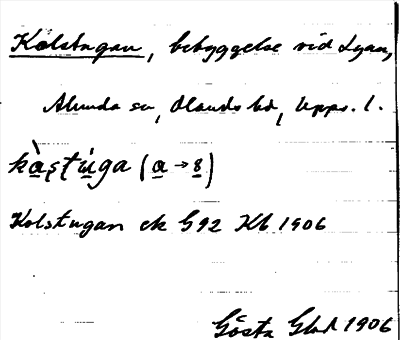 Kolstugan, bebyggelse vid Lyan,
Alunda sn, Olands hd, Upps. l.
kàştúga (a → 8)
Kolstugan ek G92 Kb 1906
Gösta Glad 1906